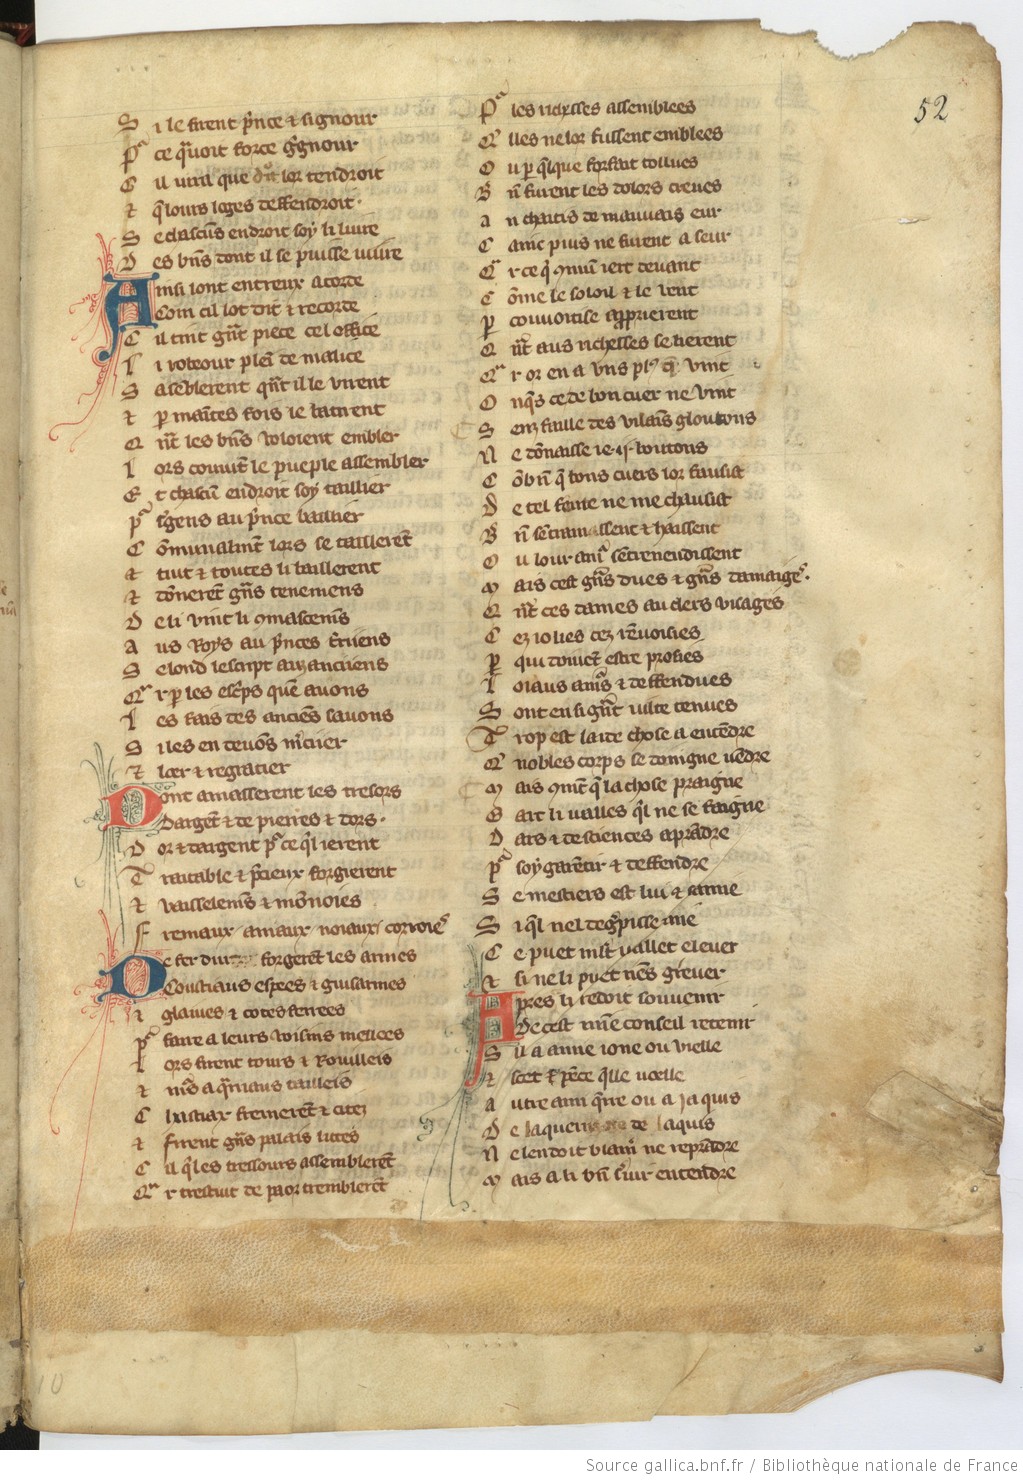 52
Si le firent p̄nce ⁊ signour
Pᵃ ce q̄ uoit force g̃gnour
Cil uint que lor tendroit
⁊ q̄ lours loges deffendroit·
Se chascūs endroit soy li liure
Des bn̄s dont il se puisse uiure
Ainsi sont entreux acorde
Com cil lot dit ⁊ recorde
Cil tint gñt piece cel office
Li roteour pleī de malice
Saseblerent qñt il le virent
⁊ ꝑ maītes fois le batirent
Qñt les bn̄s voloient embler
Lors couuīt le pueple assembler
Et chascū endroit soy taillier
Pᵃ s̃gens au p̄nce baillier
Cōmunalmēt lors se taillerēt
⁊ tuit ⁊ toutes li baillerent
⁊ dōnerēt gñs tenemens
De li vint li 9mascemīs
Aus Roys au p̄nces t̄riiens
Selond lescript aus anciiens
Qᵃr ꝑ les esc̃ps queꝰ auons
Les fais des anciēs sauons
Si les en deuōs m̃ciier
⁊ loer ⁊ regracier
Dont amasserent les tresors
Dargēt ⁊ de pierres ⁊ dors·
Dor ⁊ dargent pᵃ ce q̄l ierent
Traitable ⁊ p̄cieux forgierent
⁊ vaisselemīs ⁊ mōnoies
Fremaux amaux noiaux corroiēˢ
De fer dur forgerēt les armes
Coustiaus espees ⁊ guisarmes
⁊ glaiues ⁊ cotes ferrees
Pᵃ faire a leurs voisins mellees
Lors firent tours ⁊ Rouilleis
⁊ murs a q̄rniaus tailleis
Chastiax fremerēt ⁊ citez
⁊ firent gñs palais listes
Cil q̄ les tressours assemblerēt
Qᵃr trestuit de paor tremblerēt
Pᵃ les richesses assemblees
Qlles ne lor fussent emblees
Ou ꝑ q̄lque forfait tollues
Bn̄ furent les dolors creues
An chaitis de mauuais eur
Canc puis ne furent a seur
Qᵃr ce q̄ 9mun iert deuant
Cōme le soloil ⁊ le vent
ꝑ conuoitise approprierent
Qñt aus richesses se lierent
Qᵃr or en a vns plꝰ q̄ vint
Onq̄s ce de bon cuer ne vint
Senz faille des vilaīs gloutons
Ne dōnasse ie·ij· boutons
Cōbn̄ q̄ bons cuers lor fausist
De tel fame ne me chausist
Bn̄ sentramassent ⁊ haissent
Ou lour amꝰ sentreuendissent
Mais cest gñs dues ⁊ gñs damaigeˢ·
Qñt ces dames au clers visages
Cez iolies cez rēuoisies
ꝑ qui doiuēt estre proisies
Loiaus amꝰs ⁊ deffendues
Sont en si gñt vilte tenues
Trop est laide chose a entēdre
Q̄ nobles corps se doingne vēdre
Mais 9mēt q̄ la chose praigne
Gart li valles q̄l ne se faigne
Dars ⁊ de sciences aprādre
Pᵃ soy garētir ⁊ deffendre
Se mestiers est lui ⁊ samie
Si q̄l nel deg̃pisse mie
Ce puet m̃lt vallet eleuer
⁊ si ne li puet riēs greuer
Apres li redoit souuenir
De cest mīe conseil retenir
Sil a amie ione ou vielle
⁊ scet ⁊ pēce q̄lle uoelle
Autre ami q̄rre ou a ja quis
De laquerre ne de laquis
Ne lendoit blamꝰ ne reprādre
Mais a li bn̄ s̃uir entendre
10
Source gallica.bnf.fr / Bibliothèque nationale de France